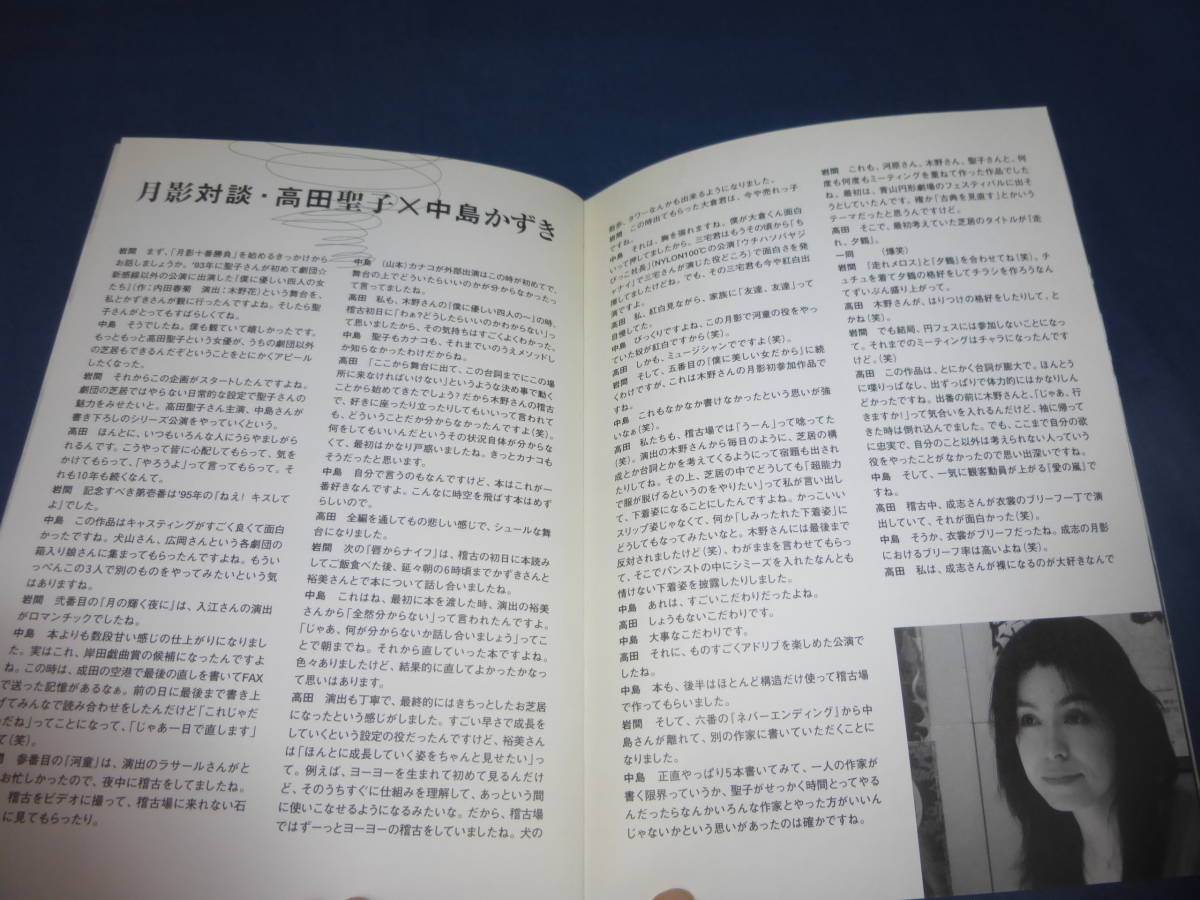 月影対談・高田聖子×中島かずき
岩間　まず、「月影十番勝負」を始めるきっかけから
お話しましょうか。'93年に聖子さんが初めて劇団☆
新感線以外の公演に出演した「僕に優しい四人の女
たち」（作：内田春菊　演出：木野花）という舞台を、
私とかずきさんが観に行ったんですよね。そしたら聖
子さんがとってもすばらしくてね。
中島　そうでしたね。僕も観ていて嬉しかったです。
もっともっと高田聖子という女優が、うちの劇団以外
の芝居もできるんだぞということをとにかくアピール
したくなった。
岩間　それからこの企画がスタートしたんですよね。
劇団の芝居ではやらない日常的な設定で聖子さんの
魅力をみせたいと。高田聖子さん主演、中島さんが
書き下ろしのシリーズ公演をやっていくという。
高田　ほんとに、いつもいろんな人にうらやましがら
れるんです。こうやって皆に心配してもらって、気を
かけてもらって、「やろうよ」って言ってもらって。そ
れも10年も続くなんて。
岩間　記念すべき第壱番は'95年の「ねえ！キスして
よ」でした。
中島　この作品はキャスティングがすごく良くて面白
かったですね。犬山さん、広岡さんという各劇団の
箱入り娘さんに集まってもらったんですよね。もうい
っぺんこの3人で別のものをやってみたいという気
はありますね。
岩間　弐番目の「月の輝く夜に」は、入江さんの演出
がロマンチックでしたね。
中島　本よりも数段甘い感じの仕上がりになりまし
た。実はこれ、岸田戯曲賞の候補になったんですよ
ね。この時は、成田の空港で最後の直しを書いてFAX
で送った記憶があるなぁ。前の日に最後まで書き上
げてみんなで読み合わせをしたんだけど「これじゃだ
めだね」ってことになって、「じゃあ一日で直します」
て（笑）。
間　参番目の「河童」は、演出のラサールさんがと
お忙しかったので、夜中に稽古をしてましたね。
稽古をビデオに撮って、稽古場に来れない石
に見てもらったり。
中島　（山本）カナコが外部出演はこの時が初めてで、
舞台の上でどういたらいいのかが分からなかったっ
て言ってましたね。
高田　私も、木野さんの「僕に優しい四人の～」の時、
稽古初日に「わぁ?どうしたらいいのかわからない」っ
て思いましたから、その気持ちはすごくよくわかった。
中島　聖子もカナコも、それまでいのうえメソッドし
か知らなかったわけだからね。
高田　「ここから舞台に出て、この台詞までにこの場
所に来なければいけない」というような決め事で動く
ことから始めてきたでしょ？だから木野さんの稽古
で、好きに座ったり立ったりしてもいいって言われて
も、どういうことだか分からなかったんですよ（笑）。
何をしてもいいんだというその状況自体が分からな
くて、最初はかなり戸惑いましたね。きっとカナコも
そうだったと思います。
中島　自分で言うのもなんですけど、本はこれが一
番好きなんですよ。こんなに時空を飛ばす本はめず
らしいので。
高田　全編を通しての悲しい感じで、シュールな舞
台になりました。
岩間　次の「唇からナイフ」は、稽古の初日に本読み
してご飯食べた後、延々朝の6時頃までかずきさんと
裕美さんとで本について話し合いましたね。
中島　これはね、最初に本を渡した時、演出の裕美
さんから「全然分からない」って言われたんですよ。
「じゃあ、何が分からないか話し合いましょう」ってこ
とで朝までね。それから直していった本ですよね。
色々ありましたけど、結果的に直してよかったかなっ
て思いはあります。
高田　演出も丁寧で、最終的にはきちっとしたお芝居
になったという感じがしました。すごい早さで成長を
していくという設定の役だったんですけど、裕美さん
は「ほんとに成長していく姿をちゃんと見せたい」っ
て。例えば、ヨーヨーを生まれて初めて見るんだけ
ど、そのうちすぐに仕組みを理解して、あっという間
に使いこなせるようになるみたいな。だから、稽古場
ではずーっとヨーヨーの稽古をしていましたね。犬の
散歩、タワーなんかも出来るようになりました。
岩間　この時出てもらった大倉君は、今や売れっ子
ですね。
中島　それは、胸を張れますね。僕が大倉くん面白
いって押してましたから。三宅君はもうその頃から「ち
びっこ社長」（NYLON100℃の公演「ウチハソバヤジ
ャナイ」で三宅さんが演じた役どころ）で面白さを発
揮してましたけどね。でも、その三宅君も今や紅白出
演ですよ。
高田　私、紅白見ながら、家族に「友達、友達」って
自慢してた。
中島　びっくりですよね、この月影で河童の役をやっ
ていた奴が紅白ですから（笑）。
高田　しかも、ミュージシャンですよ（笑）。
岩間　そして、五番目の「僕に美しい女だから」に続
くわけですが、これは木野さんの月影初参加作品で
すね。
中島　これもなかなか書けなかったという思いが強
いなぁ（笑）。
高田　私たちも、稽古場では「うーん」って唸ってた
（笑）。演出の木野さんから毎日のように、芝居の構
成とか台詞とかを考えてくるようにって宿題も出され
たりしてね。その上、芝居の中でどうしても「超能力
で服が脱げるというのをやりたい」って私が言い出し
て、下着姿になることにしたんですよね。かっこいい
スリップ姿じゃなくて、何か「しみったれた下着姿」に
どうしてもなってみたいなと。木野さんには最後まで
反対されましたけど（笑）、わがままを言わせてもらっ
て、そこでパンストの中にシミーズを入れたなんとも
情けない下着姿を披露したりしました。
中島　あれは、すごいこだわりだったよね。
高田　しょうもないこだわりです。
中島　大事なこだわりです。
高田　それに、ものすごくアドリブを楽しめた公演で
したね。
中島　本も、後半はほとんど構造だけ使って稽古場
で作ってもらいました。
岩間　そして、六番の「ネバーエンディング」から中
島さんが離れて、別の作家に書いていただくことに
なりました。
中島　正直やっぱり5本書いてみて、一人の作家が
書く限界っていうか、聖子がせっかく時間とってやる
んだったらなんかいろんな作家とやった方がいいん
じゃないかという思いがあったのは確かですね。
岩間　これも、河原さん、木野さん、聖子さんと、何
度も何度もミーティングを重ねて作った作品でした
ね。最初は、青山円形劇場のフェスティバルに出そ
うとしていたんです。確か「古典を見直す」とかいう
テーマだったと思うんですけど。
高田　そこで、最初考えていた芝居のタイトルが「走
れ、夕鶴」。
一同　（爆笑）
岩間　「走れメロス」と「夕鶴」を合わせてね（笑）。チ
ュチュを着て夕鶴の格好をしてチラシを作ろうなん
てずいぶん盛り上がって。
高田　木野さんが、はりつけの格好をしたりして、と
かね（笑）。
岩間　でも結局、円フェスには参加しないことになっ
て。それまでのミーティングはチャラになったんです
けど。（笑）
高田　この作品は、とにかく台詞が膨大で。ほんとう
に喋りっぱなし、出ずっぱりで体力的にはかなりしん
どかったですね。出番の前に木野さんと、「じゃあ、行
きますか！」って気合いを入れるんだけど、袖に帰って
きた時は倒れ込んでました。でも、ここまで自分の欲
に忠実で、自分のこと以外は考えられない人っていう
役をやったことがなかったので思い出深いですね。
中島　そして、一気に観客動員が上がる「愛の嵐」で
すね。
高田　稽古中、成志さんが衣裳のブリーフ一丁で演
出していて、それが面白かった（笑）。
中島　そうか、衣裳がブリーフだったね。成志の月影
におけるブリーフ率は高いよね（笑）。
高田　私は、成志さんが裸になるのが大好きなんで